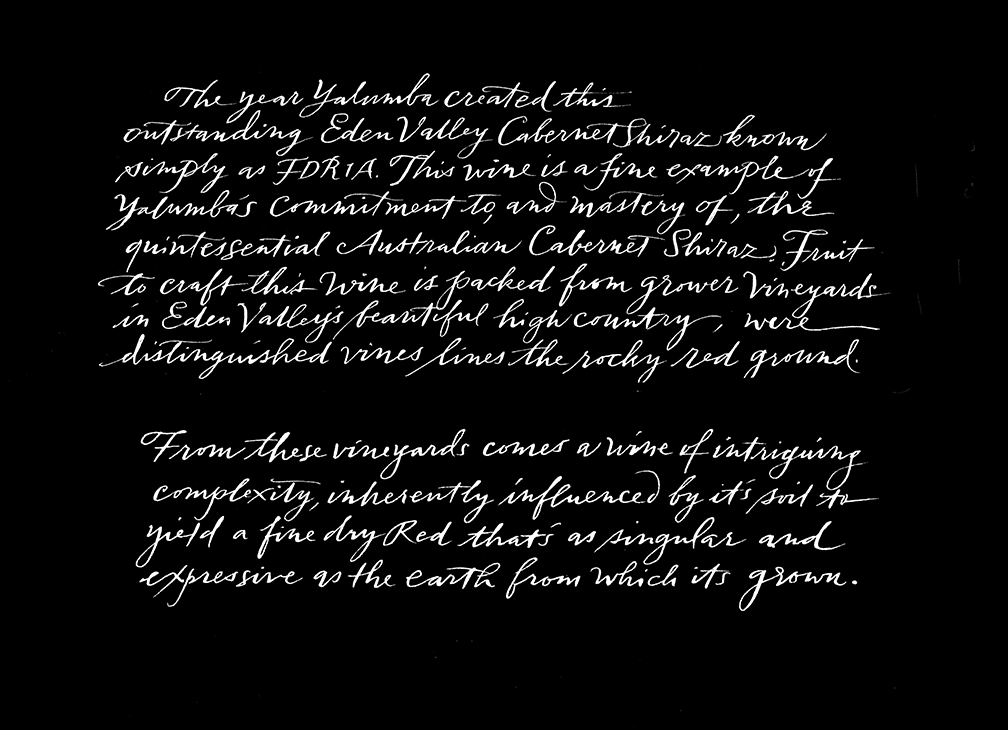 The year Yalumba created this
outstanding Eden Valley Cabernet Shiraz known
simply as FDR1A. This wine is a fine example of
Yalumba's commitment to, and mastery of, the
quintessential Australian Cabernet Shiraz. Fruit
to craft this wine is packed from grower vineyards
in Eden Valley's beautiful high country, were
distinguished vines lines the rocky red ground.
From these vineyards comes a wine of intriguing
complexity, inherently influenced by it's soil to
yield a fine dry Red that's as singular and
expressive as the earth from which its grown.